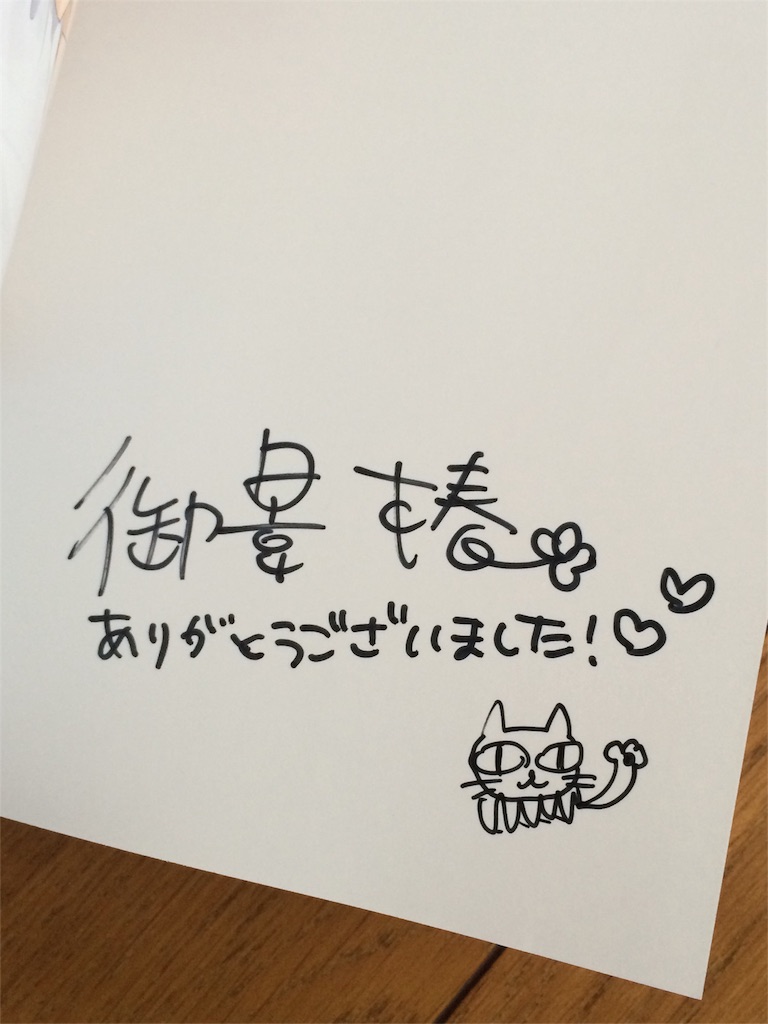 御景椿
ありがとうございました!